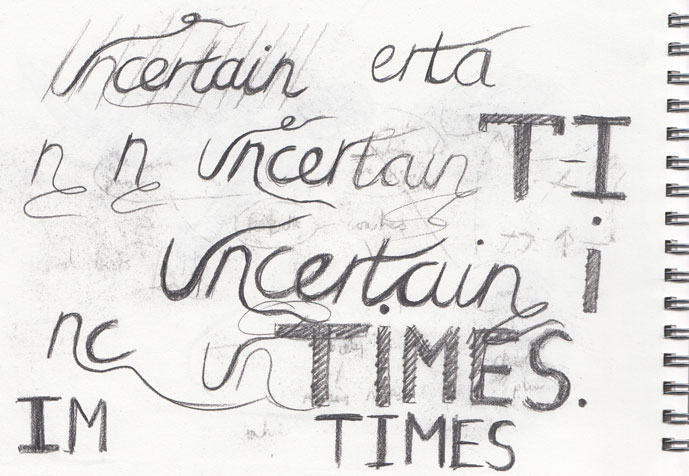 uncertain erta
n n uncertain TI
uncertain i
nc un TIMES.
IM TIMES